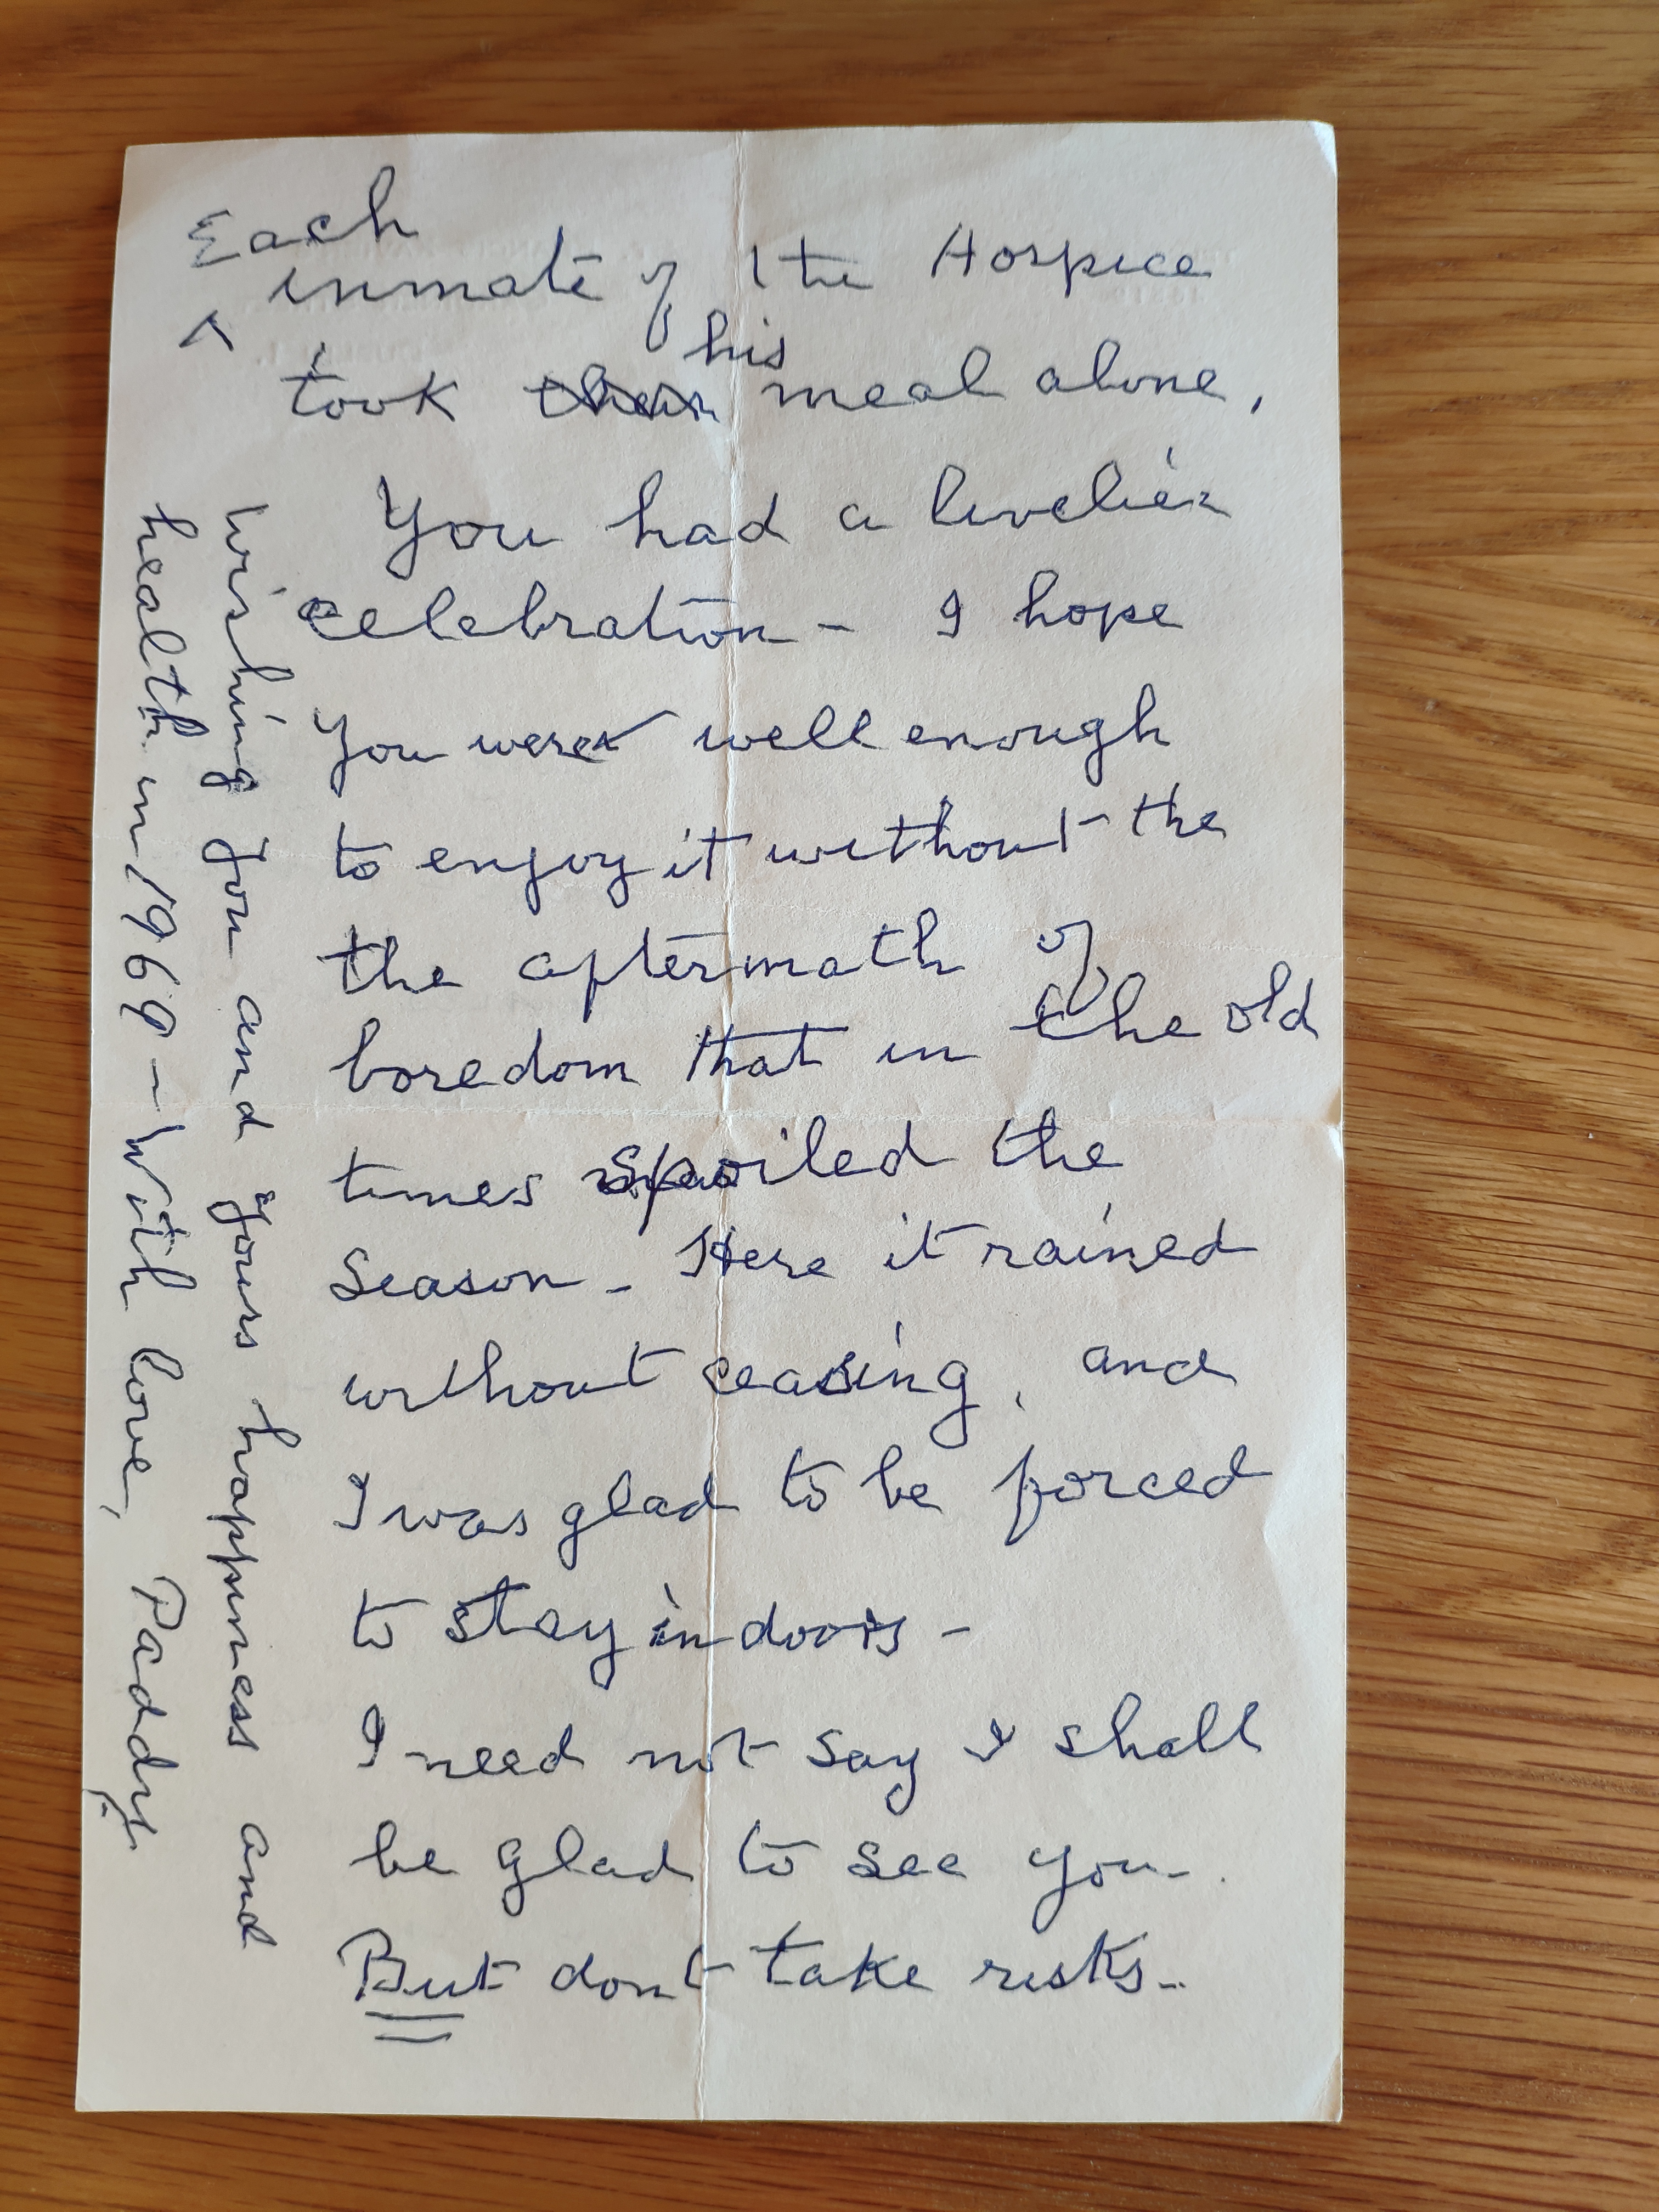 Each
inmate of the Hospice
his
took their meal alone.
You had a livelier
celebration - I hope
you were well enough
to enjoy it without the
the aftermath of
boredom that in the old
times spoiled the
season - Here it rained
without ceasing, and
I was glad to be forced
to stay indoors -
I need not say I shall
be glad to see you -
But dont take risks -
Wishing you and yours happiness and
health in 1969 - With love, Paddy.